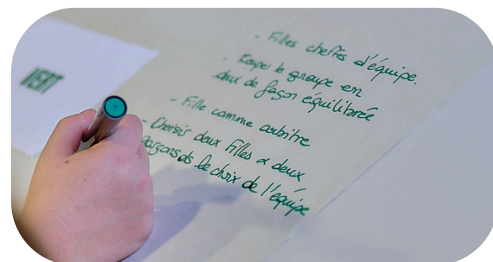 VERT
- Filles cheffes d'équipe.
- Couper le groupe en
deux de façon équilibrée
- Fille comme arbitre
- Choisis deux filles & deux
garçons ds le choix de l'équipe